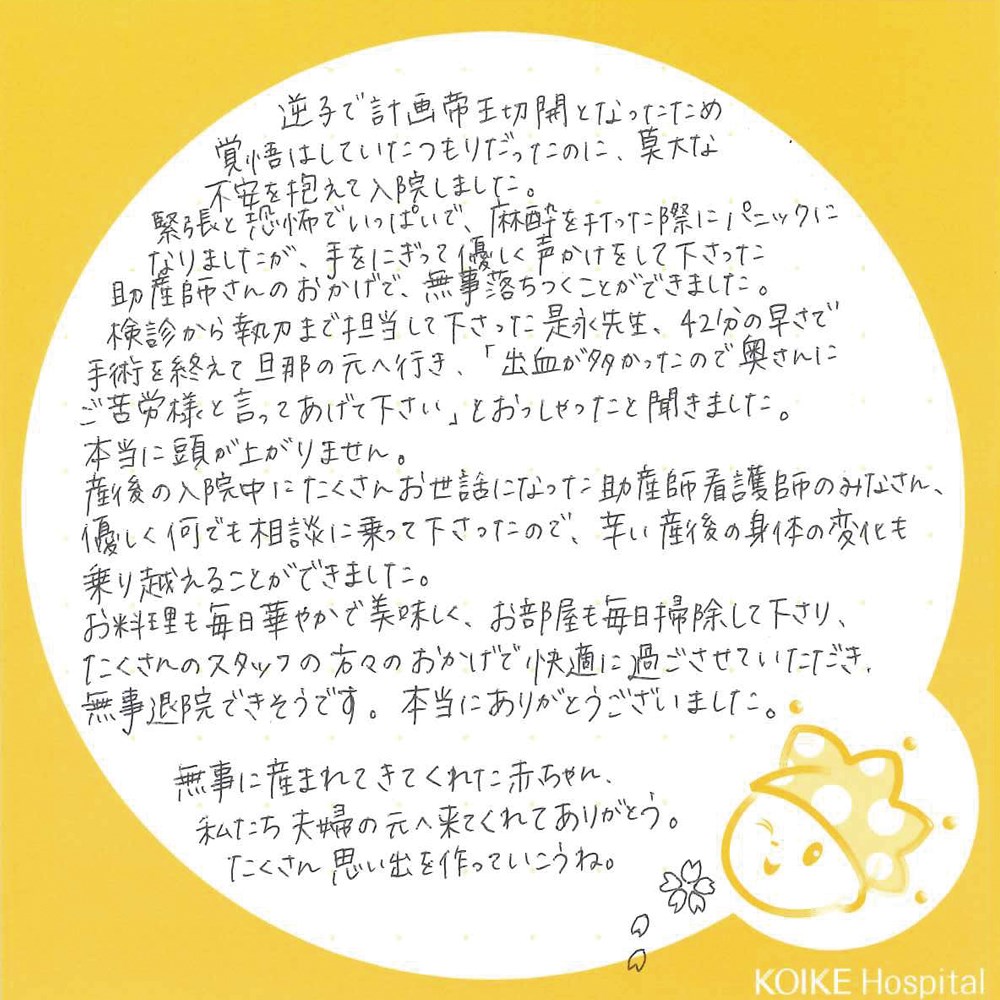 逆子で計画帝王切開となったため
覚悟はしていたつもりだったのに、莫大な
不安を抱えて入院しました。
緊張と恐怖でいっぱいで、麻酔を打った際にパニックに
なりましたが、手をにぎって優しく声かけをして下さった
助産師さんのおかげで、無事落ちつくことができました。
検診から執刀まで担当して下さった是永先生、42分の早さで
手術を終えて旦那の元へ行き、「出血が多かったので奥さんに
ご苦労様と言ってあげて下さい」とおっしゃったと聞きました。
本当に頭が上がりません。
産後の入院中にたくさんお世話になった助産師看護師のみなさん、
優しく何でも相談に乗って下さったので、辛い産後の身体の変化も
乗り越えることができました。
お料理も毎日華やかで美味しく、お部屋も毎日掃除して下さり、
たくさんのスタッフの方々のおかげで快適に過ごさせていただき、
無事退院できそうです。本当にありがとうございました。
無事に産まれてきてくれた赤ちゃん、
私たち夫婦の元へ来てくれてありがとう。
たくさん思い出を作っていこうね。
KOIKE Hospital